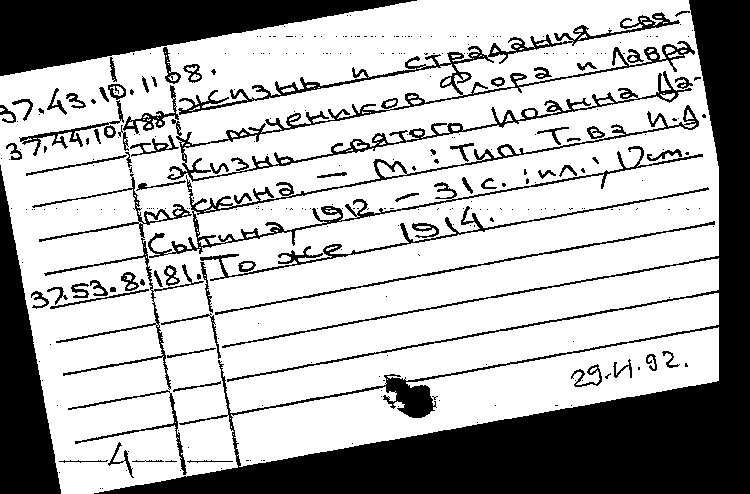 37.43.10.1108. Жизнь и страдания свя-
37.44.10.488. тых мучеников Флора и Лавра
. Жизнь святого Иоанна Да-
маскина. – М. : Тип. Т-ва И.Д.
Сытина, 1912. – 31 с. : ил. ;
37.53.8.181. То же. 1914.
4